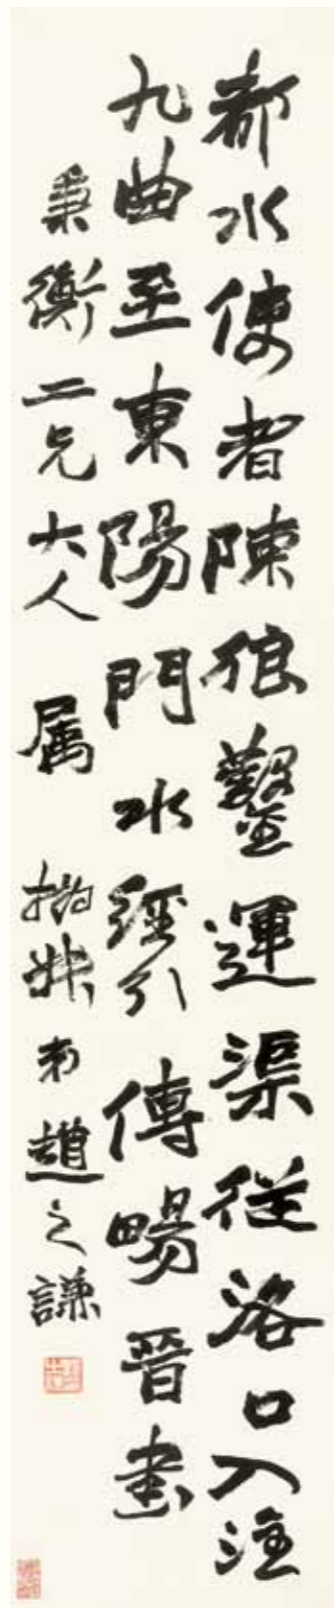 都水使者陳狼鑿運渠從洛口入注
九曲至東陽門水經引傅暢晉書
秉衡二兄大人属撝叔弟趙之謙